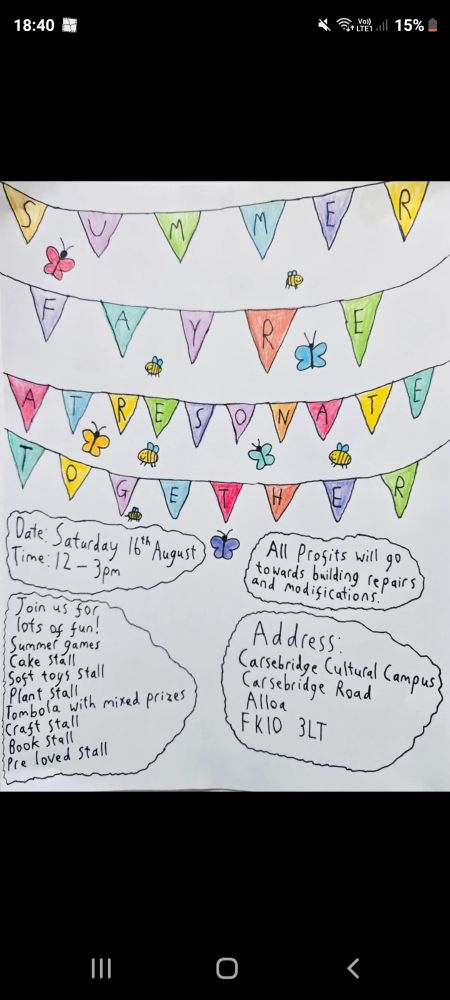 18:40
Vo)) LTE1 15%
SUMMER
FAYRE
AT RESONATE
TOGETHER
Date: Saturday 16th August
Time: 12 - 3pm
All Profits will go
towards building repairs
and modifications.
Join us for
lots of fun!
Summer games
Cake stall
Soft toys stall
Plant stall
Tombola with mixed prizes
Craft stall
Book stall
Pre loved stall
Address:
Carsebridge Cultural Campus
Carsebridge Road
Alloa
FK10 3LT